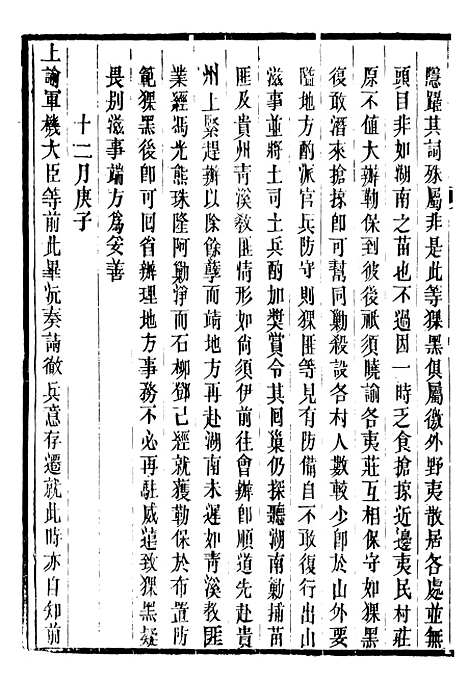 隱躍其詞殊屬非是此等猓黑俱屬徼外野夷散居各處並無
頭目非如湖南之苗也不過因一時乏食搶掠近邊夷民村莊
原不值大辦勒保到彼後祇須曉諭各夷莊互相保守如猓黑
復敢潛來搶掠卽可幫同勦殺設各村人數較少卽於山外要
隘地方酌派官兵防守則猓匪等見有防備自不敢復行出山
滋事並將土司土兵酌加獎賞令其囘巢仍探聽湖南勦捕苗
匪及貴州青溪敎匪情形如尙須伊前往會辦卽順道先赴貴
州上緊趕辦以除餘孽而靖地方再赴湖南未遲如青溪敎匪
業經馮光熊珠隆阿勦淨而石柳鄧已經就獲勒保於布置防
範猓黑後卽可囘省辦理地方事務不必再駐威遠致猓黑疑
畏別滋事端方爲妥善
十二月庚子
上諭軍機大臣等前此畢沅奏請徹兵意存遷就此時亦自知前